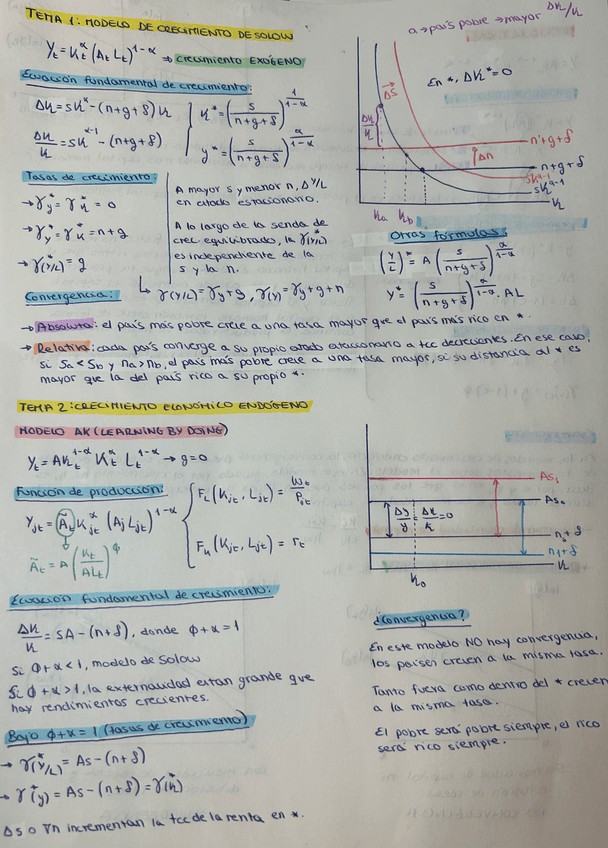 TEMA 1: MODELO DE CRECIMIENTO DE SOLOW
Yt = Kt^α (At Lt)^1-α ⇒ crecimiento EXÓGENO
Ecuación fundamental de crecimiento:
Δk = sk^α - (n+g+δ)k
Δk/k = sk^α-1 - (n+g+δ)
k* = (s/(n+g+δ))^1/(1-α)
y* = (s/(n+g+δ))^α/(1-α)
a → país pobre → mayor Δk/k
En *, Δk* = 0
Δs
Δk/k
n'+g+δ
Δn
n+g+δ
s'k^α-1
sk^α-1
k
ka kb
Tasas de crecimiento:
→ γy* = γk* = 0
→ γY* = γK* = n+g
→ γ(Y/L)* = g
A mayor s y menor n, Δ Y/L
en estado estacionario.
A lo largo de la senda de
crec. equilibrado, la γ(Y/L)
es independiente de la
s y la n.
↳ γ(Y/L) = γy + g, γ(Y) = γy + g + n
Otras fórmulas:
(Y/L)* = A (s/(n+g+δ))^α/(1-α)
Y* = (s/(n+g+δ))^α/(1-α) · AL
Convergencia:
→ Absoluta: el país más pobre crece a una tasa mayor que el país más rico en *.
→ Relativa: cada país converge a su propio estado estacionario a tcc decrecientes. En ese caso,
si sa < sb y na > nb, el país más pobre crece a una tasa mayor, si su distancia al * es
mayor que la del país rico a su propio *.
TEMA 2: CRECIMIENTO ECONÓMICO ENDÓGENO
MODELO AK (LEARNING BY DOING)
Yt = AKt^1-α Kt^α Lt^1-α → g=0
Función de producción:
Yjt = Ãt Kjt^α (Aj Ljt)^1-α
Ãt = A (Kt/ALt)^φ
FL (Kjt, Ljt) = Wt/Pt
Fk (Kjt, Ljt) = rt
As1
As0
Δy/y = Δk/k = 0
n0+δ
n1+δ
k
k0
Ecuación fundamental de crecimiento:
Δk/k = sA - (n+δ), donde φ+α = 1
Si φ+α < 1, modelo de Solow
Si φ+α > 1, la externalidad es tan grande que
hay rendimientos crecientes.
Bajo φ+α = 1 (tasas de crecimiento)
→ γ(Y/L)* = As - (n+δ)
→ γ*(y) = As - (n+δ) = γ(k)*
Δs o ∇n incrementan la tcc de la renta en *.
¿Convergencia?
En este modelo NO hay convergencia,
los países crecen a la misma tasa.
Tanto fuera como dentro del * crecen
a la misma tasa.
El pobre será pobre siempre, el rico
será rico siempre.